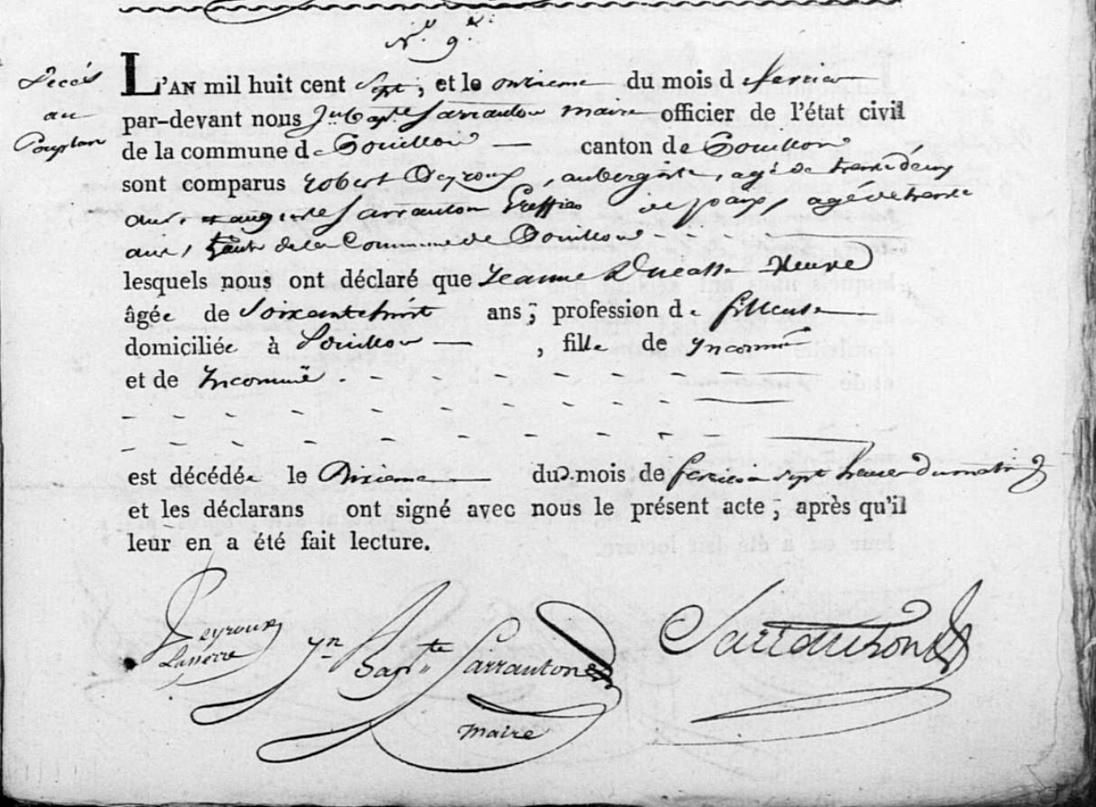 N.º 9.
Décès
au
L'AN mil huit cent Sept, et le onzieme du mois de fevrier
par-devant nous Jn Bapte Sarrauton maire officier de l'état civil
de la commune de Pouillon canton de Pouillon
sont comparus robert Peyroux, aubergiste, agé de trente deux
ans, et auguste Sarrauton Greffier de paix, agé de trente
ans, de la Commune de Pouillon
lesquels nous ont déclaré que Jeanne Ducasse Veuve
âgée de Soixante huit ans ; profession de filleuse
domiciliée à Pouillon , fille de Inconnu
et de Inconnue.
est décédée le Dixieme du mois de fevrier a sept heures du matin
et les déclarans ont signé avec nous le présent acte ; après qu'il
leur en a été fait lecture.
Peyroux
Jn Bapte Sarrauton
maire
Sarrauton